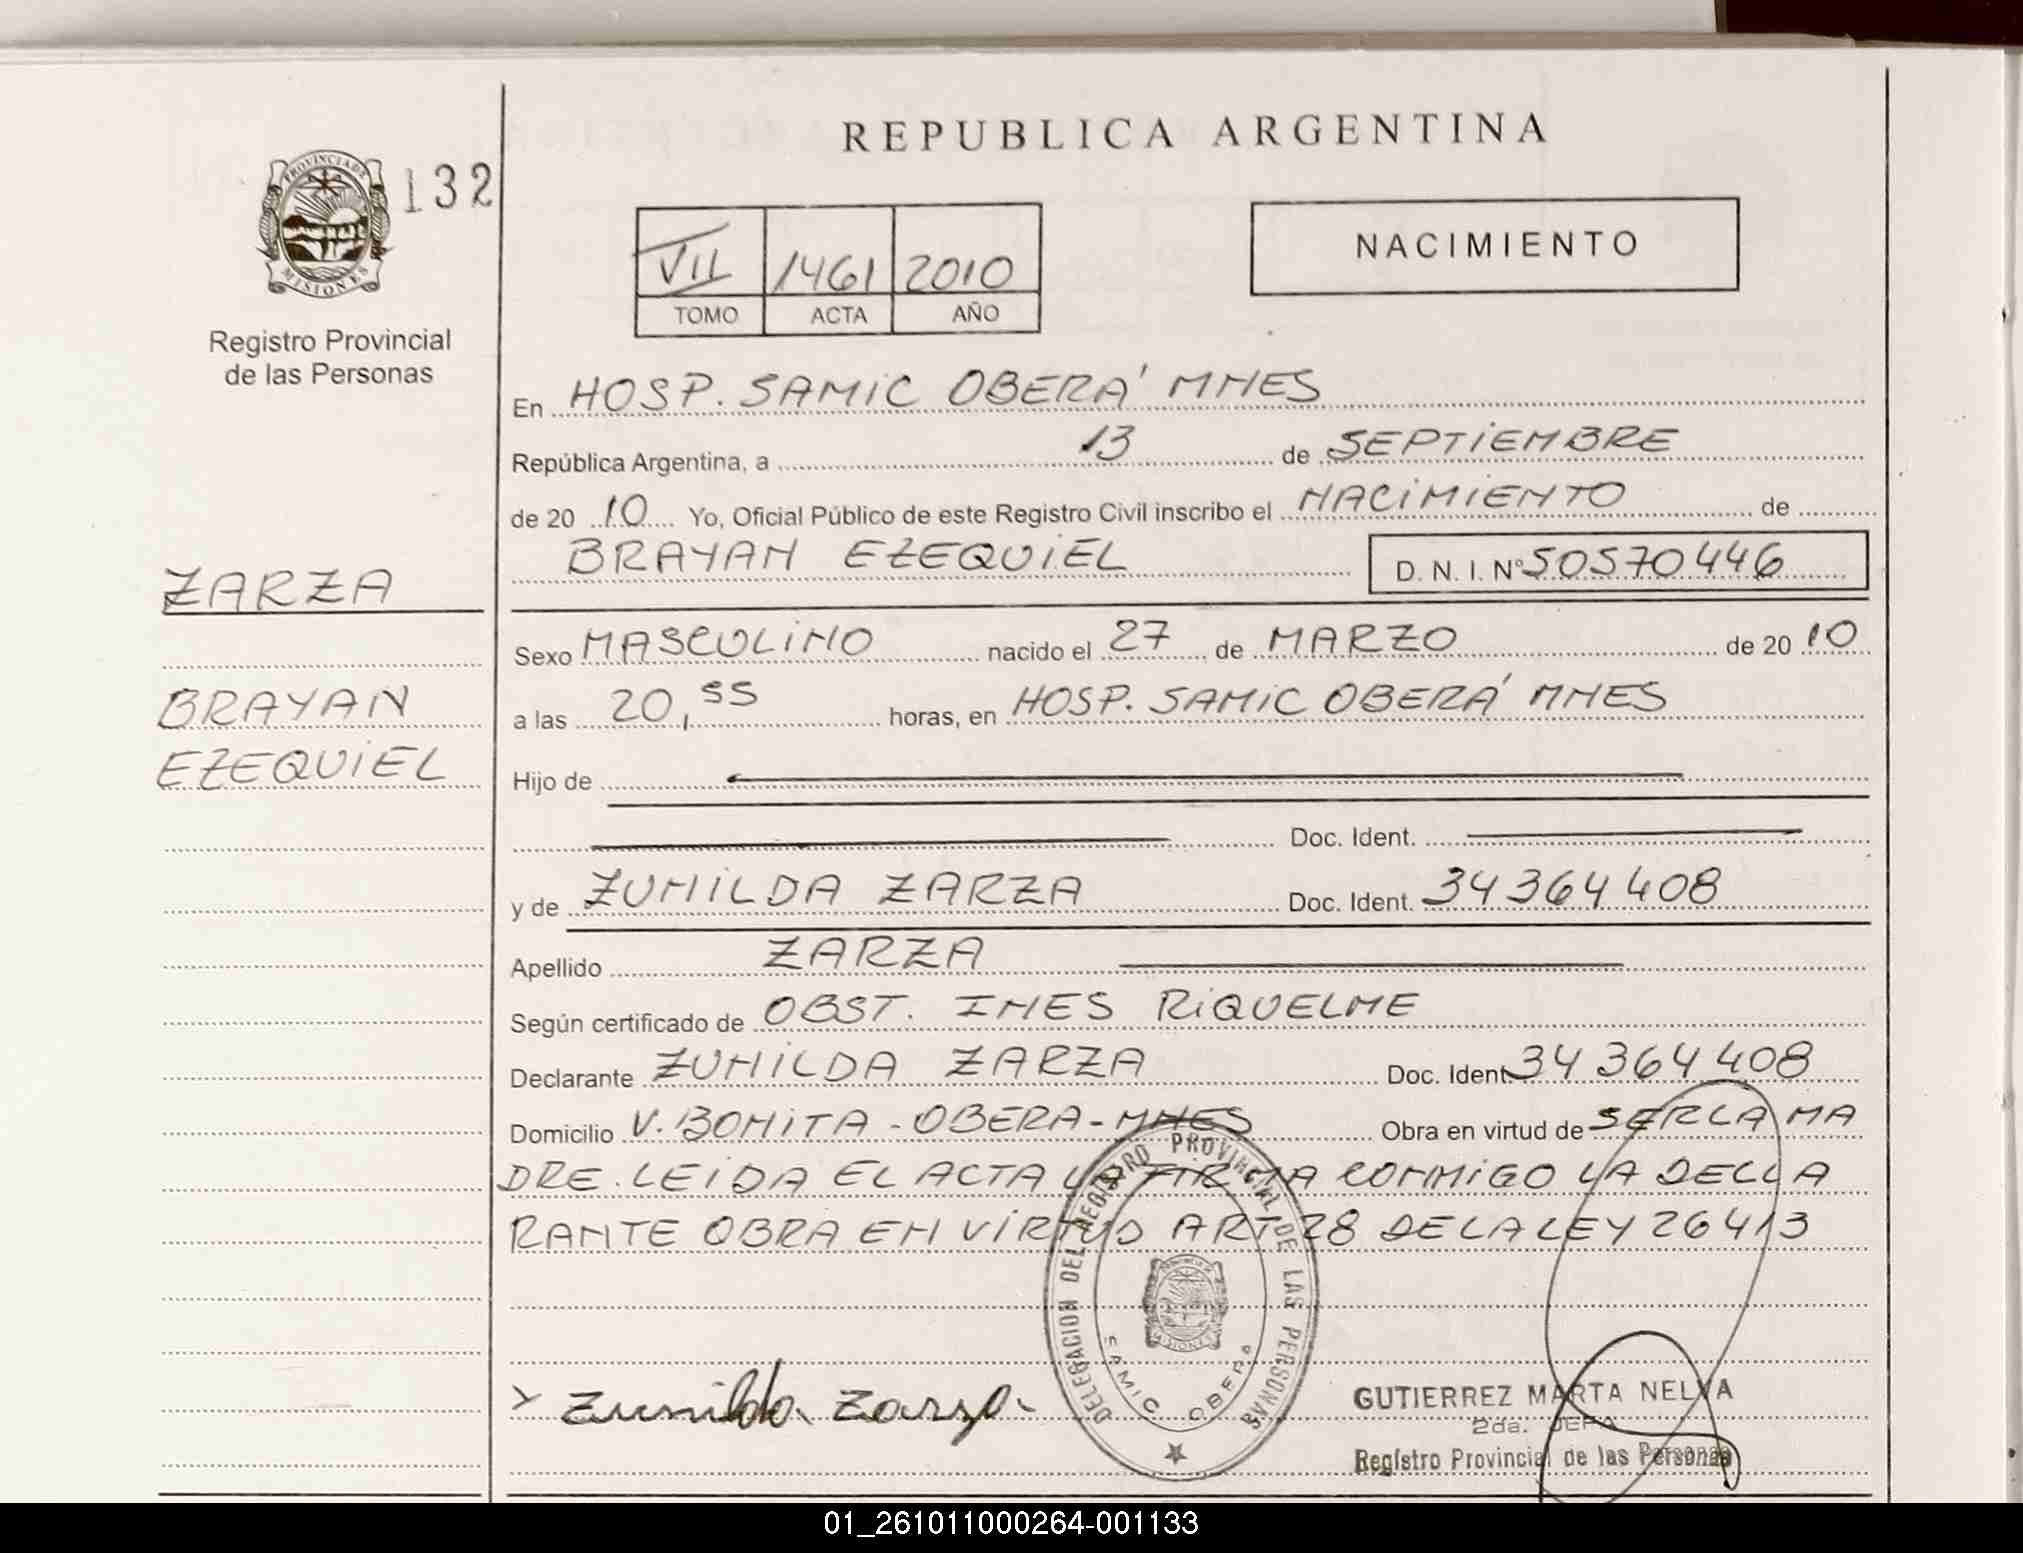 REPUBLICA ARGENTINA
PROVINCIA DE MISIONES
132
VII 1461 2010
TOMO ACTA AÑO
NACIMIENTO
Registro Provincial
de las Personas
En HOSP. SAMIC OBERÁ MNES
República Argentina, a 13 de SEPTIEMBRE
de 20 10 Yo, Oficial Público de este Registro Civil inscribo el NACIMIENTO de
BRAYAN EZEQUIEL D.N.I. Nº 50570446
ZARZA
BRAYAN
EZEQUIEL
Sexo MASCULINO nacido el 27 de MARZO de 20 10
a las 20,55 horas, en HOSP. SAMIC OBERÁ MNES
Hijo de
Doc. Ident.
y de ZUNILDA ZARZA Doc. Ident. 34364408
Apellido ZARZA
Según certificado de OBST. INES RIQUELME
Declarante ZUNILDA ZARZA Doc. Ident. 34364408
Domicilio V. BONITA - OBERA - MNES Obra en virtud de SER LA MA
DRE. LEIDA EL ACTA LA FIRMA CONMIGO LA DECLA
RANTE OBRA EN VIRTUD ART 28 DE LA LEY 26413
DELEGACION DEL REGISTRO PROVINCIAL DE LAS PERSONAS
SAMIC OBERA
Zunilda Zarza
GUTIERREZ MARTA NELVA
2da. JEFA
Registro Provincial de las Personas
01_261011000264-001133